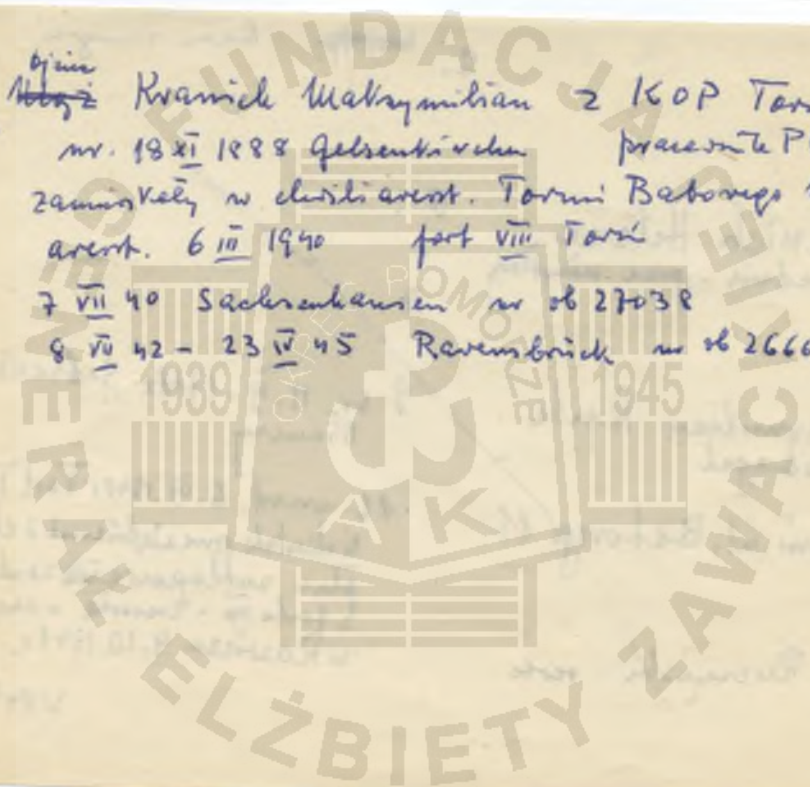 ojciec
Mąż Kranich Maksymilian z KOP Toru
ur. 18 XI 1888 Gelsenkirchen pracownik P
zamieszkały w chwili areszt. Toruń Batorego
areszt. 6 III 1940 fort VIII Toruń
7 VII 40 Sachsenhausen nr ob 27038
8 VII 42 – 23 IV 45 Ravensbrück nr ob 2666
FUNDACJA
GENERAŁ ELŻBIETY ZAWACKIEJ
OKRĘG POMORZE
1939 1945
AK